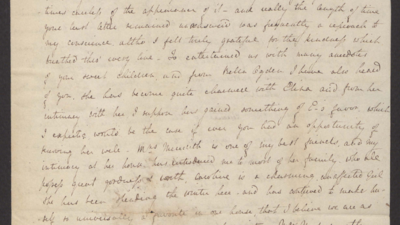 times careless of the appearance of it - and really the length of time
your last after mentioned unanswered was frequently a reproach to
my conscience altho I felt truly grateful for the kindness which
breathed thro' every line. So entertained us with many anecdotes
of you & your children and from Helen Ogden I have also heard
of you. She has become quite enamoured with and from her
intimacy with her I suppose has gained something of E's favor, which
I expected would be the case if ever you had an opportunity of
knowing her well. Mrs Meredith is one of my best friends, and my
intimacy at her house has introduced me to most of her family, who all
possess great goodness & worth. Caroline is a charming unaffected girl
she has been spending the winter here and has contrived to make her-
self so universally in our house that I believe we are as
the